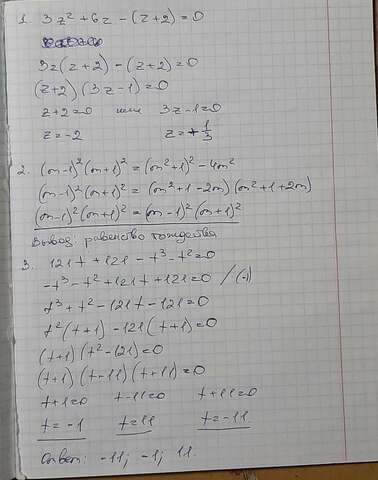 1. 3z² + 6z - (z+2) = 0
3z(z+2) - (z+2) = 0
(z+2)(3z-1) = 0
z+2=0 или 3z-1=0
z=-2 z=1/3
2. (m-1)²(m+1)² = (m²+1)² - 4m²
(m-1)²(m+1)² = (m²+1-2m)(m²+1+2m)
(m-1)²(m+1)² = (m-1)²(m+1)²
Вывод: равенство тождества
3. 121t + 121 - t³ - t² = 0
-t³ - t² + 121t + 121 = 0 /(-1)
t³ + t² - 121t - 121 = 0
t²(t+1) - 121(t+1) = 0
(t+1)(t²-121) = 0
(t+1)(t-11)(t+11) = 0
t+1=0 t-11=0 t+11=0
t=-1 t=11 t=-11
Ответ: -11; -1; 11.